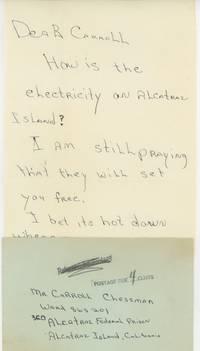 Dear Carroll
How is the
electricity on Alcatraz
Island?
I am still praying
that they will set
you free.
I bet its hot down
where
POSTAGE DUE 4 CENTS
Mr Carroll Chessman
Alcatraz Federal Prison
Alcatraz Island, California